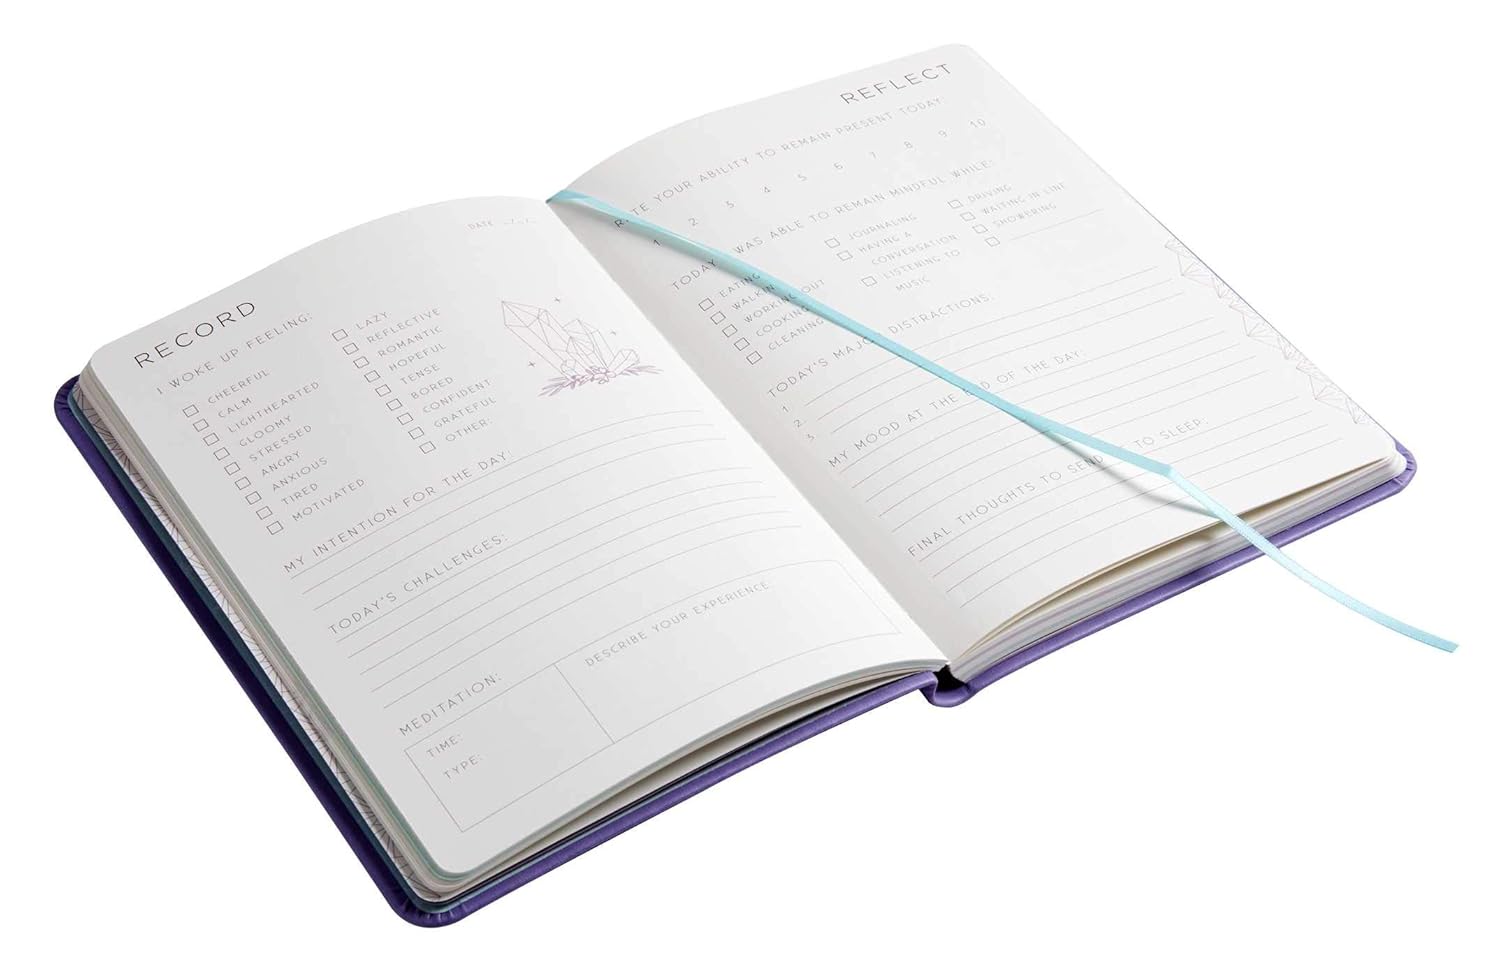 RECORD
DATE
I WOKE UP FEELING:
CHEERFUL
CALM
LIGHTHEARTED
GLOOMY
STRESSED
ANGRY
ANXIOUS
TIRED
MOTIVATED
LAZY
REFLECTIVE
ROMANTIC
HOPEFUL
TENSE
BORED
CONFIDENT
GRATEFUL
OTHER:
MY INTENTION FOR THE DAY:
TODAY'S CHALLENGES:
MEDITATION:
TIME:
TYPE:
DESCRIBE YOUR EXPERIENCE
REFLECT
RATE YOUR ABILITY TO REMAIN PRESENT TODAY
1 2 3 4 5 6 7 8 9 10
TODAY WAS ABLE TO REMAIN MINDFUL WHILE:
EATING
WALKIN
WORKING OUT
COOKING
CLEANING
JOURNALING
HAVING A
CONVERSATION
LISTENING TO
MUSIC
DRIVING
WAITING IN LINE
SHOWERING
TODAY'S MAJOR DISTRACTIONS:
1
2
3
MY MOOD AT THE END OF THE DAY:
FINAL THOUGHTS TO SEND TO SLEEP: